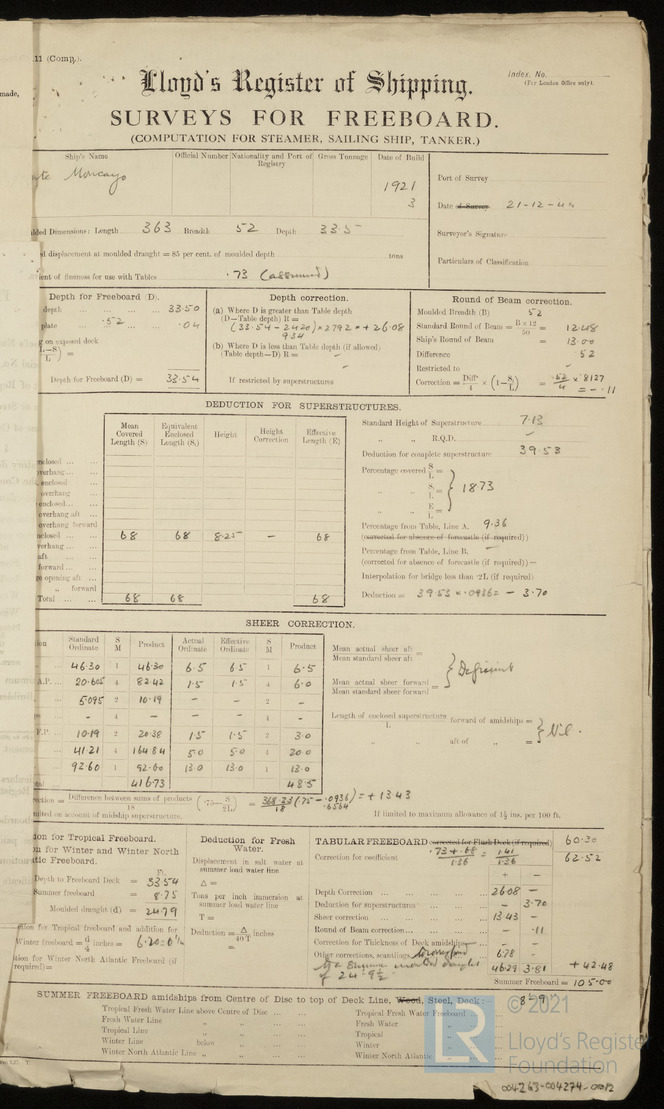 11 (Comp.).
made,
Lloyd's Register of Shipping.
Index. No.
(For London Office only).
SURVEYS FOR FREEBOARD.
(COMPUTATION FOR STEAMER, SAILING SHIP, TANKER.)
Ship's Name Official Number Nationality and Port of Registry Gross Tonnage Date of Build
Moncayo 1921
3
Port of Survey
Date of Survey 21-12-44
Surveyor's Signature
Particulars of Classification
lded Dimensions: Length 363 Breadth 52 Depth 33.5
d displacement at moulded draught = 85 per cent. of moulded depth tons
ient of fineness for use with Tables .73 (assumed)
Depth for Freeboard (D).
depth 33.50
plate .52 .04
g on exposed deck
Depth for Freeboard (D) = 33.54
Depth correction.
(a) Where D is greater than Table depth
(D—Table depth) R =
(33.54 - 24.20) × 2.792 = + 26.08
9.34
(b) Where D is less than Table depth (if allowed)
(Table depth—D) R =
If restricted by superstructures
Round of Beam correction.
Moulded Breadth (B) 52
Standard Round of Beam = B × 12 / 50 = 12.48
Ship's Round of Beam = 13.00
Difference .52
Restricted to
Correction = Diff. / 4 × (1 - S/L) = .52/4 × .8127
= - .11
DEDUCTION FOR SUPERSTRUCTURES.
Mean Covered Length (S) Equivalent Enclosed Length (S₁) Height Height Correction Effective Length (E)
nclosed
verhang
enclosed
overhang
enclosed
overhang aft
overhang forward
nclosed 68 68 8.25 - 68
verhang
aft
forward
e opening aft
„ forward
Total 68 68 68
Standard Height of Superstructure 7.13
„ „ R.Q.D. -
Deduction for complete superstructure 39.53
Percentage covered S/L =
„ „ S₁/L =
„ „ E/L =
} 1873
Percentage from Table, Line A. 9.36
(corrected for absence of forecastle (if required))
Percentage from Table, Line B. -
(corrected for absence of forecastle (if required)) —
Interpolation for bridge less than .2L (if required)
Deduction = 39.53 × .0936 = - 3.70
SHEER CORRECTION.
Standard Ordinate S M Product Actual Ordinate Effective Ordinate S M Product
46.30 1 46.30 6.5 6.5 1 6.5
A.P. 20.605 4 82.42 1.5 1.5 4 6.0
5.095 2 10.19 - - 2 -
- 4 - - - 4 -
F.P. 10.19 2 20.38 1.5 1.5 2 3.0
41.21 4 164.84 5.0 5.0 4 20.0
92.60 1 92.60 13.0 13.0 1 13.0
416.73 48.5
Mean actual sheer aft =
Mean standard sheer aft
Mean actual sheer forward =
Mean standard sheer forward
} Deficient
Length of enclosed superstructure forward of amidships =
L
„ „ aft of „ =
} Nil.
rection = Difference between sums of products / 18 (.75 - S/2L) = 368.23 / 18 (.75 - .0936) = + 13.43
.6564
mited on account of midship superstructure. If limited to maximum allowance of 1½ ins. per 100 ft.
ion for Tropical Freeboard.
n for Winter and Winter North
tic Freeboard.
Ft.
Depth to Freeboard Deck = 33.54
Summer freeboard = 8.75
Moulded draught (d) = 24.79
tion for Tropical freeboard and addition for
Winter freeboard = d/4 inches = 6.20 = 6¼
ition for Winter North Atlantic Freeboard (if
required) =
Deduction for Fresh Water.
Displacement in salt water at
summer load water line
Δ =
Tons per inch immersion at
summer load water line
T =
Deduction = Δ / 40 T inches
=
TABULAR FREEBOARD corrected for Flush Deck (if required) 60.30
Correction for coefficient .73 + .68 / 1.36 = 1.41 / 1.36 62.52
+ -
Depth Correction 26.08 -
Deduction for superstructures - 3.70
Sheer correction 13.43 -
Round of Beam correction - .11
Correction for Thickness of Deck amidships -
Other corrections, scantlings, 6.78 -
46.29 3.81 + 42.48
Summer Freeboard = 105.00
SUMMER FREEBOARD amidships from Centre of Disc to top of Deck Line, Wood, Steel, Deck: 8' 9"
Tropical Fresh Water Line above Centre of Disc
Fresh Water Line „ „
Tropical Line „ „
Winter Line below „
Winter North Atlantic Line „ „
Tropical Fresh Water Freeboard
Fresh Water „
Tropical „
Winter „
Winter North Atlantic „
© 2021
LR
Lloyd's Register
Foundation
004263-004274-0012